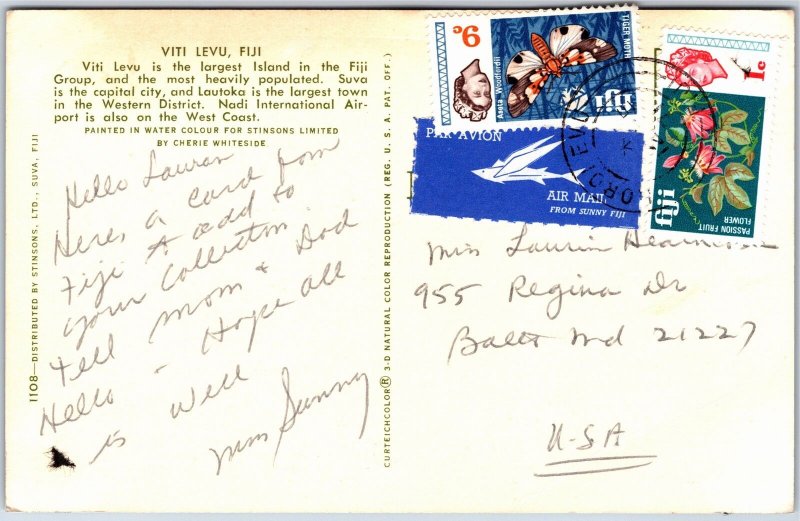 VITI LEVU, FIJI
Viti Levu is the largest Island in the Fiji
Group, and the most heavily populated. Suva
is the capital city, and Lautoka is the largest town
in the Western District. Nadi International Air-
port is also on the West Coast.
PAINTED IN WATER COLOUR FOR STINSONS LIMITED
BY CHERIE WHITESIDE
Hello Lauran
Heres a card from
Fiji to add to
your Collection
tell mom & Dad
Hello - Hope all
is well
Mrs Sunny
1108—DISTRIBUTED BY STINSONS, LTD., SUVA, FIJI
CURTEICHCOLOR® 3-D NATURAL COLOR REPRODUCTION (REG. U. S. A. PAT. OFF.)
9c
TIGER MOTH
Aeota Woodfordii
fiji
1c
PASSION FRUIT
FLOWER
fiji
PAR AVION
AIR MAIL
FROM SUNNY FIJI
Miss Laurin
955 Regina Dr
Balto Md 21227
U-S A